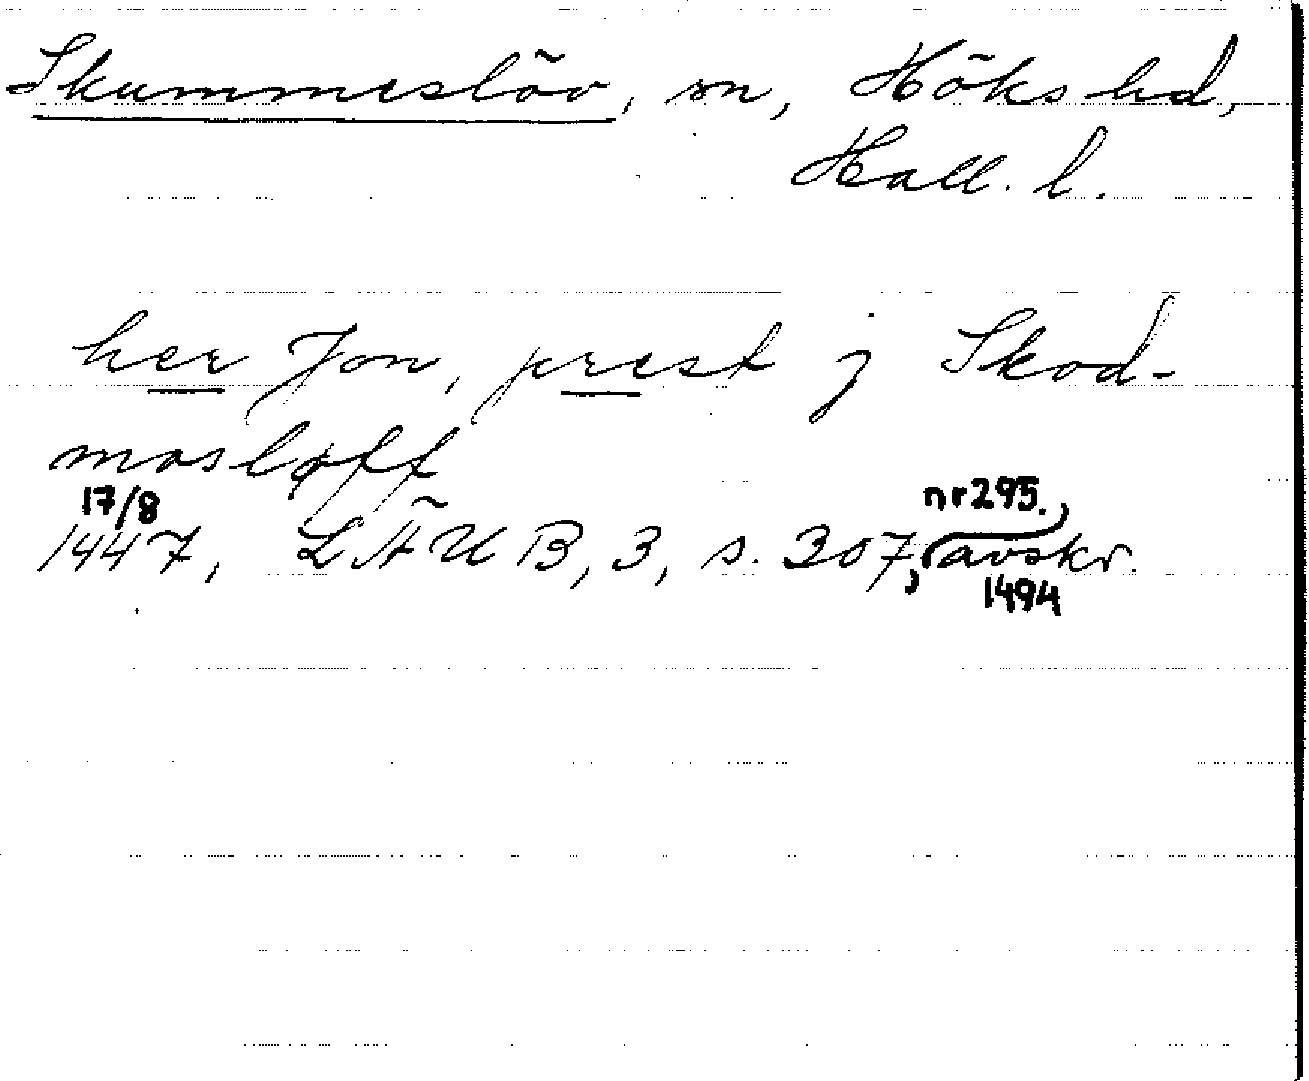 Skummeslöv, sn, Höks hd,
Hall. l.
her Jon, prest j Skod-
mosløff
17/8
1447, LÄUB, 3, s. 307, avskr.
nr 295.,
1494